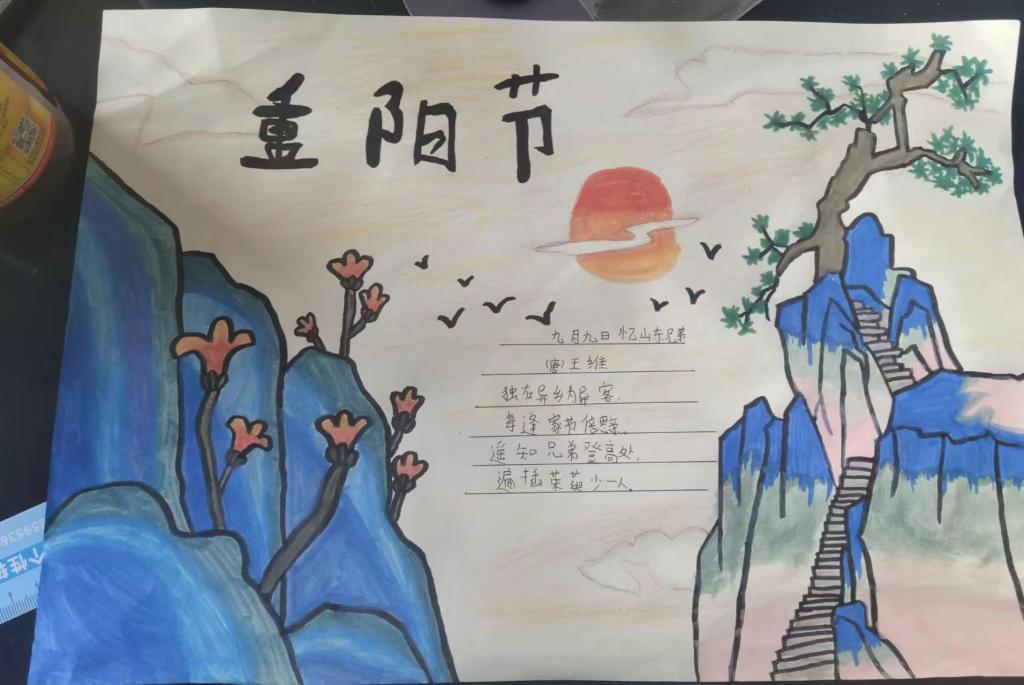 重阳节
九月九日忆山东兄弟
(唐)王维
独在异乡为异客,
每逢家节倍思亲。
遥知兄弟登高处,
遍插茱萸少一人。